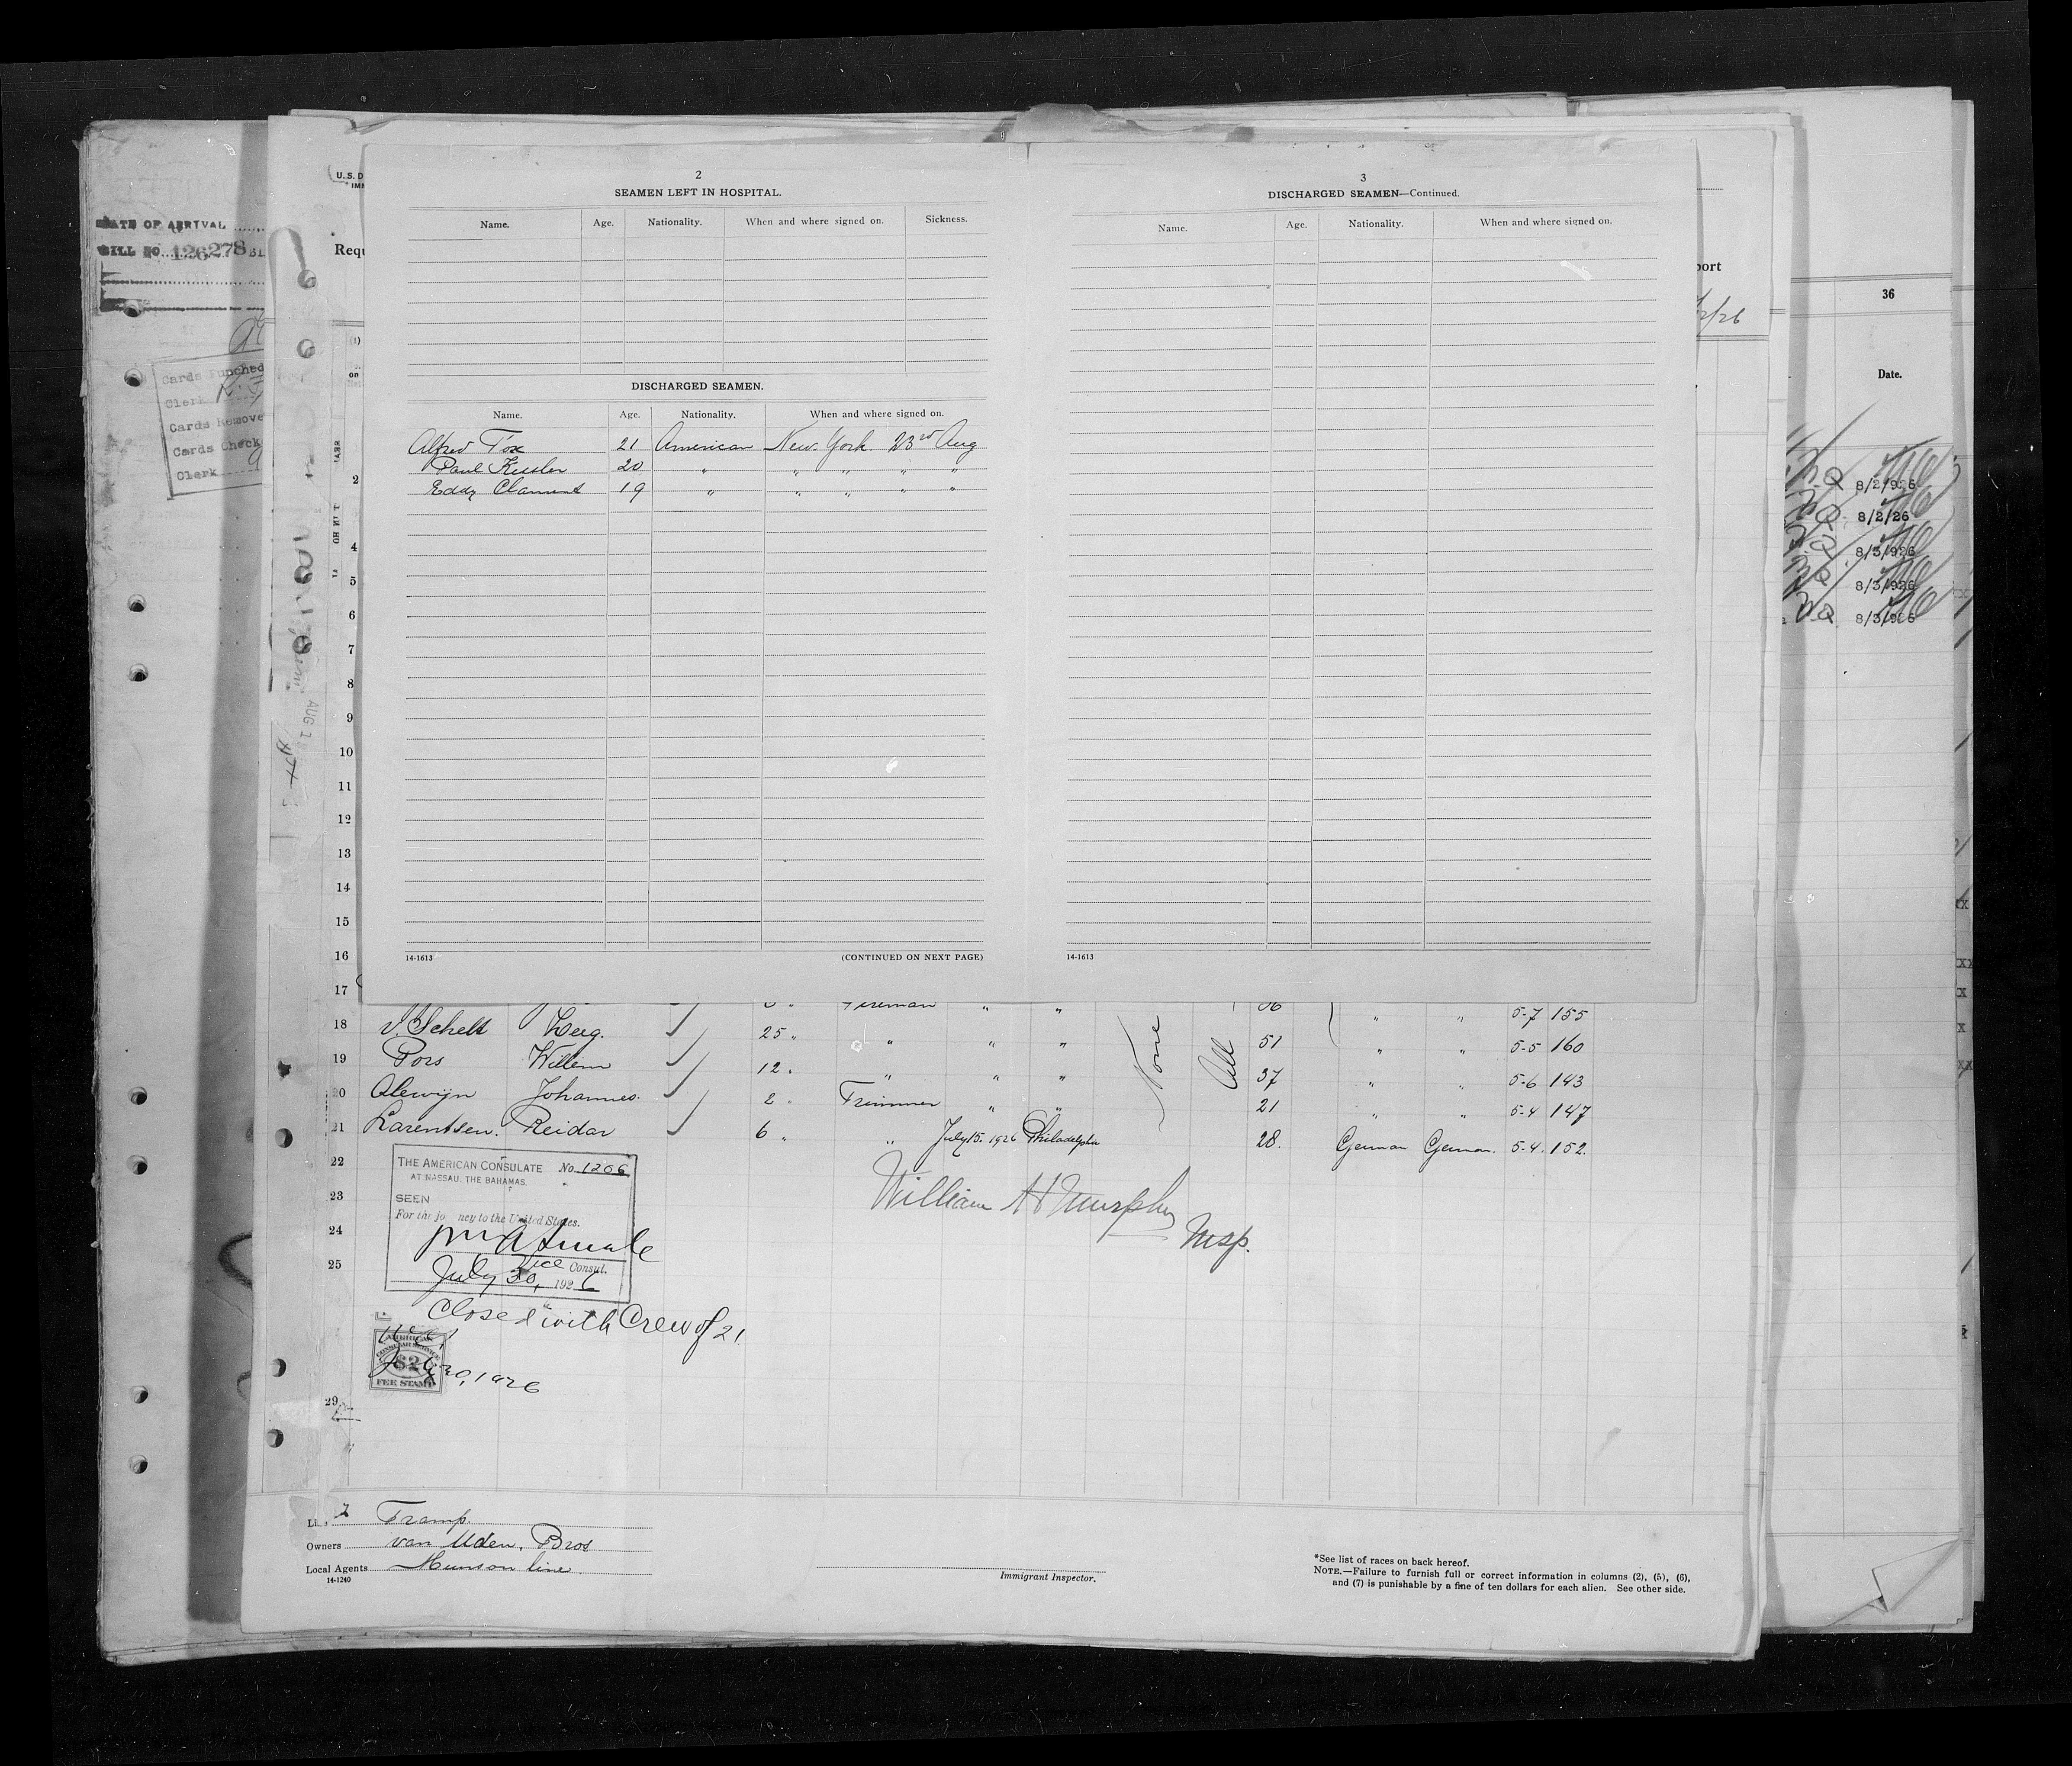 2
SEAMEN LEFT IN HOSPITAL.
Name. Age. Nationality. When and where signed on. Sickness.
DISCHARGED SEAMEN.
Name. Age. Nationality. When and where signed on.
Alfred Fox 21 American New York 23rd Aug
Paul 20 " " " " "
Eddy 19 " " " " "
14-1613
(CONTINUED ON NEXT PAGE)
3
DISCHARGED SEAMEN—Continued.
Name. Age. Nationality. When and where signed on.
14-1613
U.S. D
Requ
port
2/26
DATE OF ARRIVAL
BILL NO. 126278
Cards Punched
Clerk
Cards Remove
Cards Check
Clerk
AUG 2
36
Date.
8/2/926
8/2/26
8/3/926
8/3/926
8/3/926
2
4
5
6
7
8
9
10
11
12
13
14
15
16
17 Fireman " " 36 " " 5-7 155
18 v. Schelt 25 " " " " 51 " " 5-5 160
19 Pors Willem 12 " " " " 37 " " 5-6 143
20 Alewijn Johannes. 2 " Trimmer " " 21 " " 5-4 147
21 Larentsen. Reidar 6 " " July 15. 1926 Philadelphia 28. German German. 5-4. 152.
None
All
22
23
24
25
29
THE AMERICAN CONSULATE No. 1206
AT NASSAU, THE BAHAMAS.
SEEN
For the jo ney to the United States.
Vice Consul.
July 30, 1926
William H Murphy
Insp.
Closed with Crew of 21
AMERICAN
CONSULAR SERVICE
$2
FEE STAMP
July 30, 1926
Line Tramp.
Owners van Uden. Bros
Local Agents Munson line.
14-1240
Immigrant Inspector.
*See list of races on back hereof.
NOTE.—Failure to furnish full or correct information in columns (2), (5), (6),
and (7) is punishable by a fine of ten dollars for each alien. See other side.